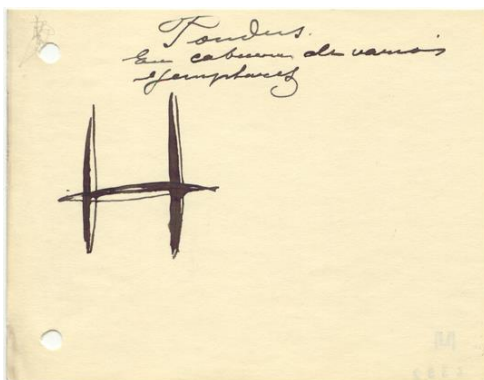 Tondus.
En cabecera de varios
ejemplares
H